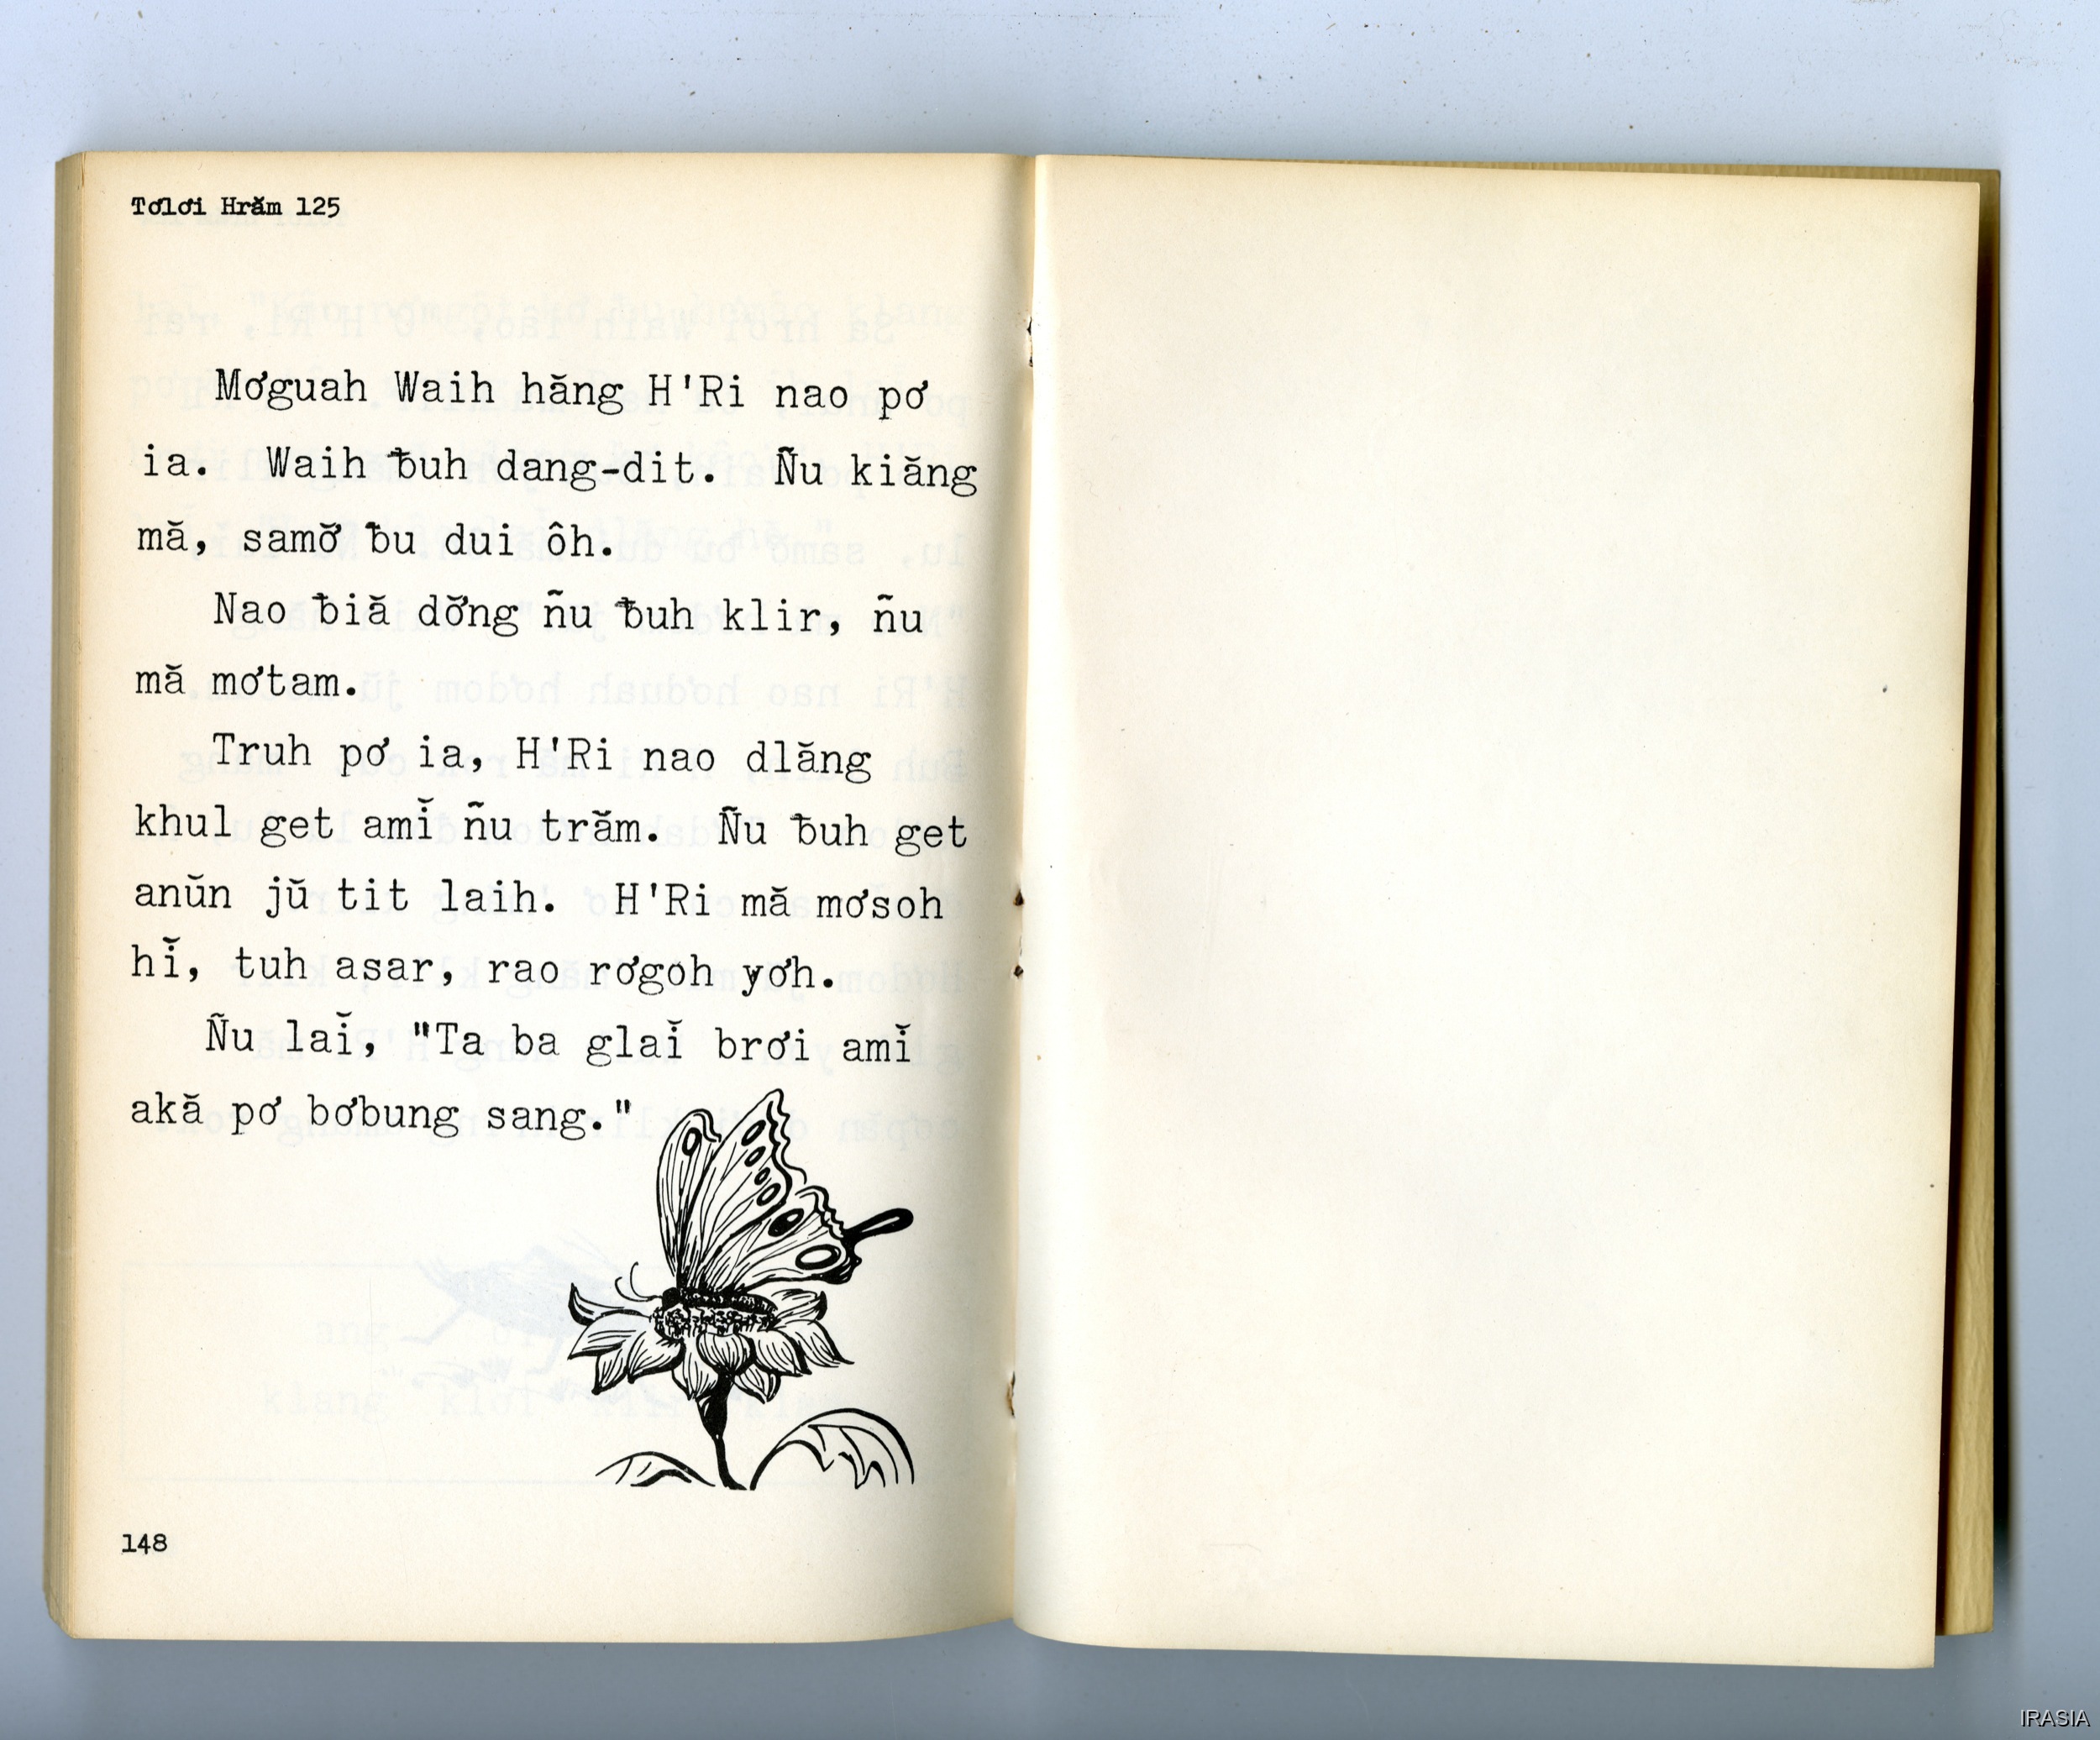 Tơlơi Hrăm 125
Mơguah Waih hăng H'Ri nao pơ
ia. Waih ƀuh dang-dit. Ñu kiăng
mă, samơ̆ ƀu dui ôh.
Nao ƀiă dơ̆ng ñu ƀuh klir, ñu
mă mơtam.
Truh pơ ia, H'Ri nao dlăng
khul get amĭ ñu trăm. Ñu ƀuh get
anŭn jŭ tit laih. H'Ri mă mơsoh
hĭ, tuh asar, rao rơgoh yơh.
Ñu laĭ, "Ta ba glaĭ brơi amĭ
akă pơ bơbung sang."
148
IRASIA